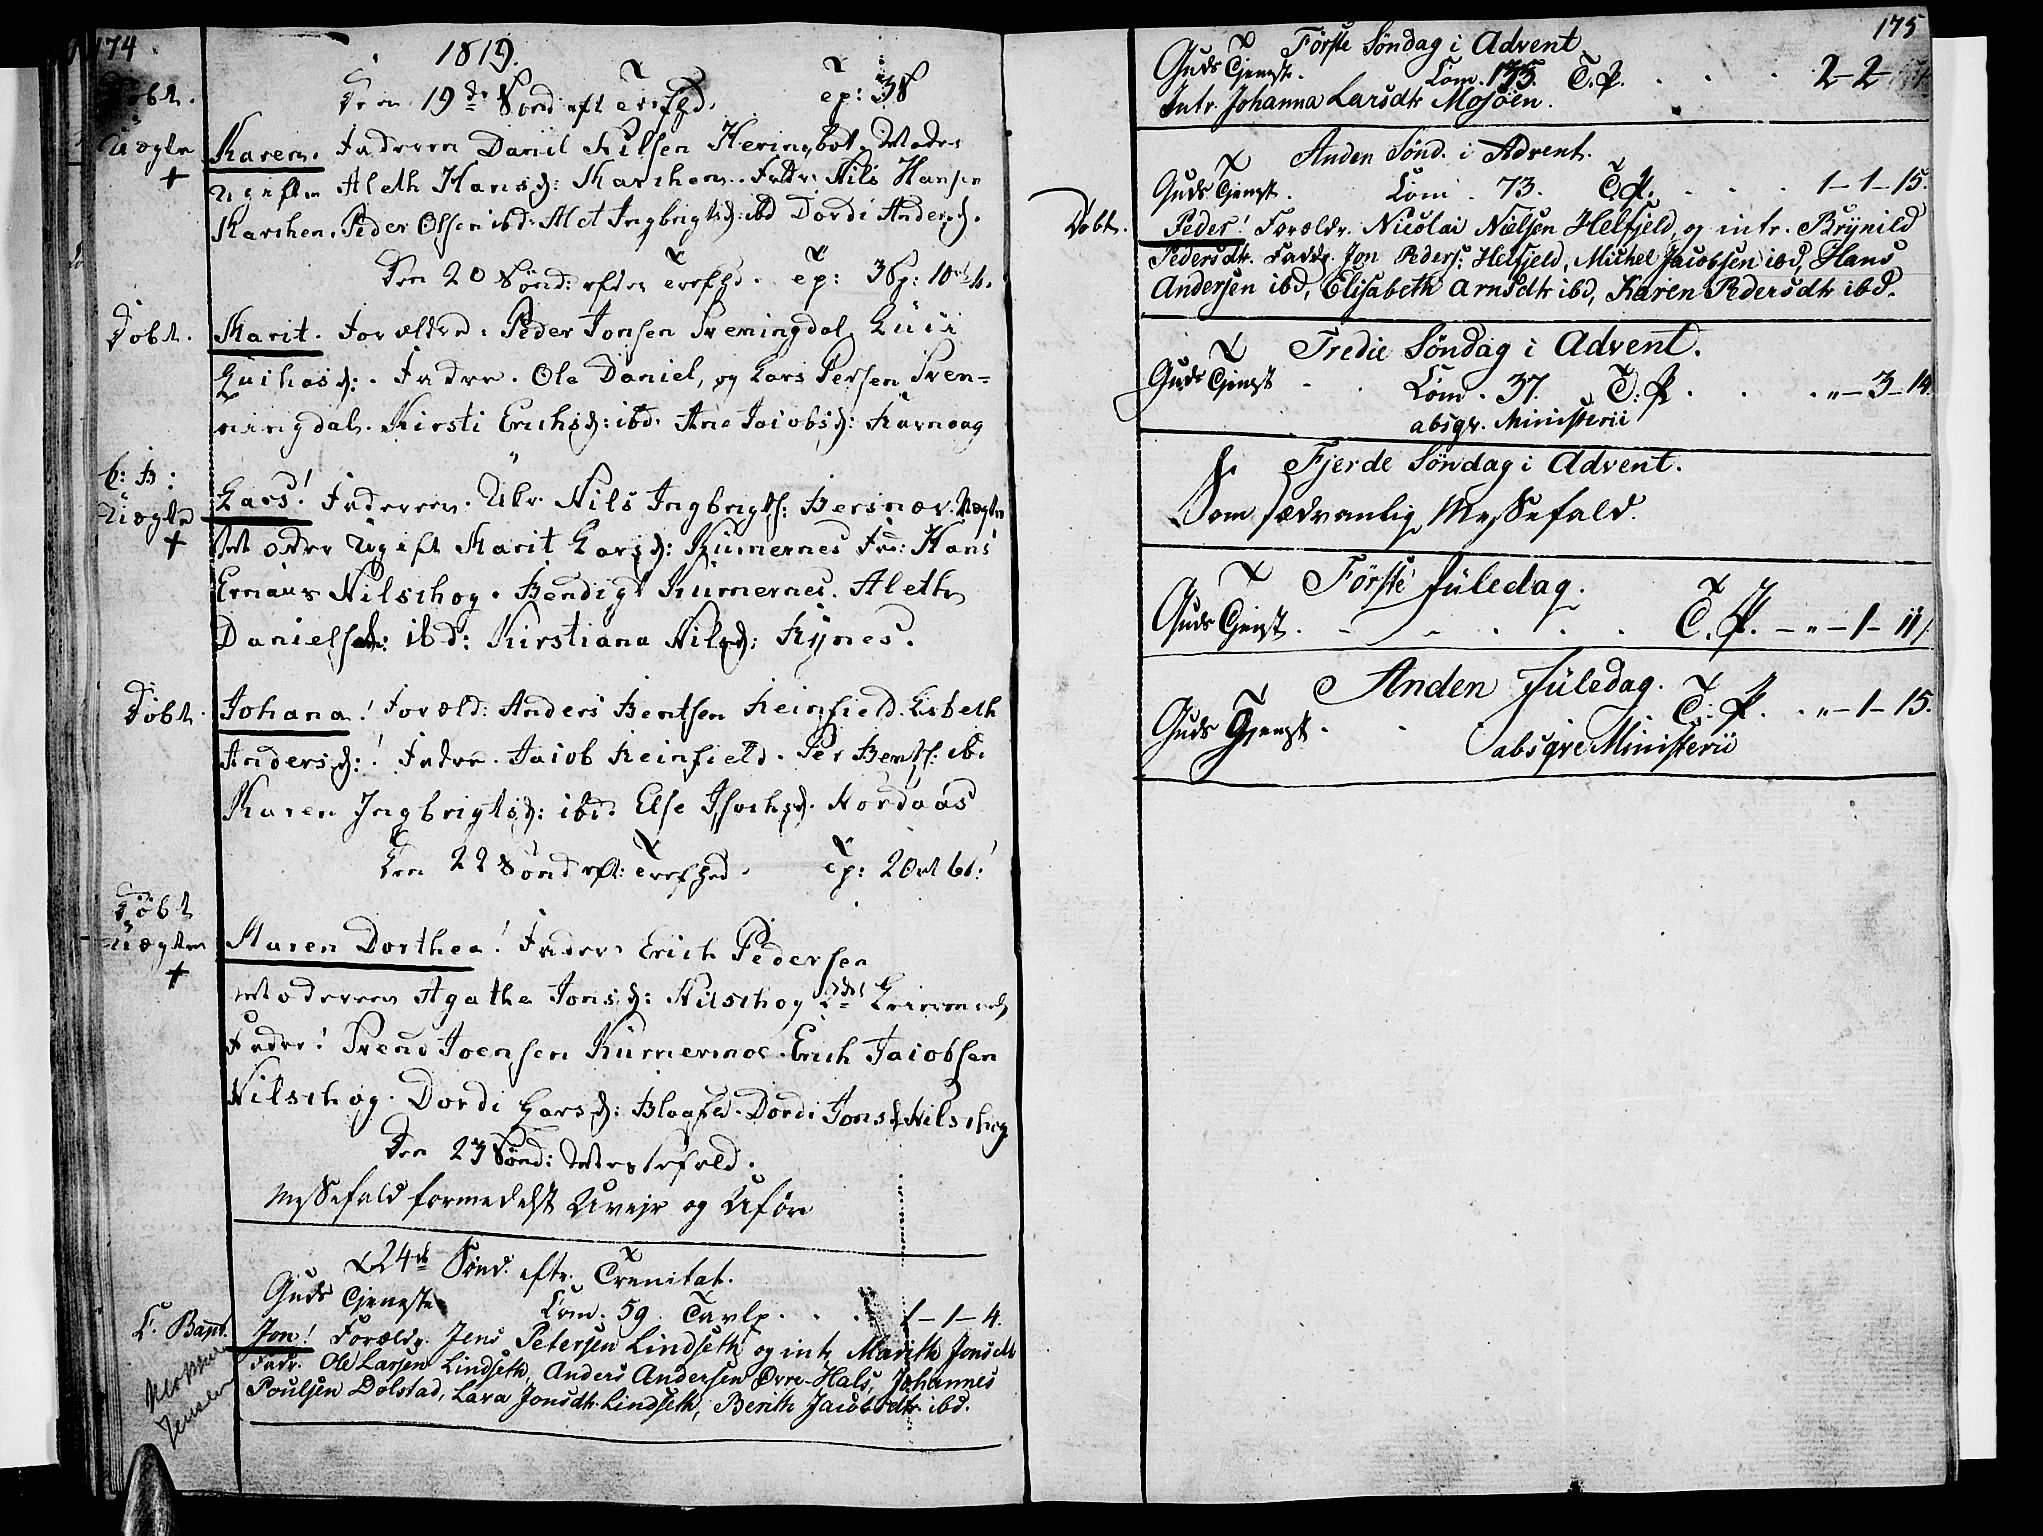 174
1819.
Døbt.
Den 19de Sønd: eft Trefhed. Tp: 38
Uægte Karen. Faderen Daniil Nilsen Heringbot. Moder
+ Ugifte Aleth Hansd: Marchen. Fadr. Nils Hansen
Marchen. Peder Olsen ibd: Alet Ingbrigtsd: ibd Dordi Andersd.
Den 20 Sønd: efter Trefhd. Tp:
Døbt. Marit. Forældre. Peder Jonsen Svenningdal,
Fadre. Ole Daniel, og Lars Persen Sven-
ningdal. Kirsti Erichsd: ibd: Ane Jacobsd:
C: B:
Uægte Lars! Faderen. Nils Ingbrigts:
+ Moder Ugift Marit Larsd: Kumernes Fad: Hans
Nilschog. Bendigt Kumernes. Aleth
Danielsd: ibd: Kirstiana Nilsd: Rynes.
Døbt. Johana! Foræld: Anders Bentsen Reinfield. Lisbeth
Andersd:! Fadre. Jacob Reinfield. Per Bents: ib.
Karen Ingbrigtsd: ibd: Else Isachsd. Nordaas
Den 22 Sønd eft: Trefhed. Tp: 2 Ort 6s:
Døbt
Uægte Maren Dorthea! Fader Erich Pedersen
+ Moderen Agatha Jonsd: Nilschog
Fadre! Svend Joensen Kumermoe. Erich Jacobsen
Nilschog. Dordi Larsd: Blaafeld. Dordi Jonsd Nilschog
Den 23 Sønd: Messefald.
Messefald formedelst Uvejr og Uføre
24de Sønd. eftr. Trenitat.
Guds Tjeneste Com. 59. Tavlp. . . 1-1-4.
C. Bapt. Jon! Forældr. Jens Petersen Lindseth og intr. Marith Jonsdtr
Fadr. Ole Larsen Lindseth, Anders Andersen Øvre-Hals, Johannes
Poulsen Dolstad, Lava Jonsdtr. Lindseth, Berith Jacobsdtr. ibd.
Klokker
Jensen
175
Første Søndag i Advent
Guds Tjenst. Com. 135. T. P. . . . 2-2-
Intr. Johanna Larsdtr Mosøen.
Anden Sønd. i Advent.
Guds Tjenst. Com. 73. T. P. . . . 1-1-15.
Døbt. Peder! Forældr. Nicolai Nielsen Helfjeld, og intr. Brynild
Pedersdtr. Faddr. Jon Peders: Helfjeld, Michel Jacobsen ibd, Hans
Andersen ibd, Elisabeth Arnsdtr ibd, Karen Pedersdtr ibd.
Tredie Søndag i Advent.
Guds Tjenst . . Com. 37. T: P. . . . „-3-14.
absqv. Ministerii
Fjerde Søndag i Advent.
Som sædvanlig Messefald.
Første Juledag.
Guds Tjenst. T. P. -„-1-11/.
Anden Juledag.
Guds Tjenst. . T: P. . „-1-15.
absqve Ministerii